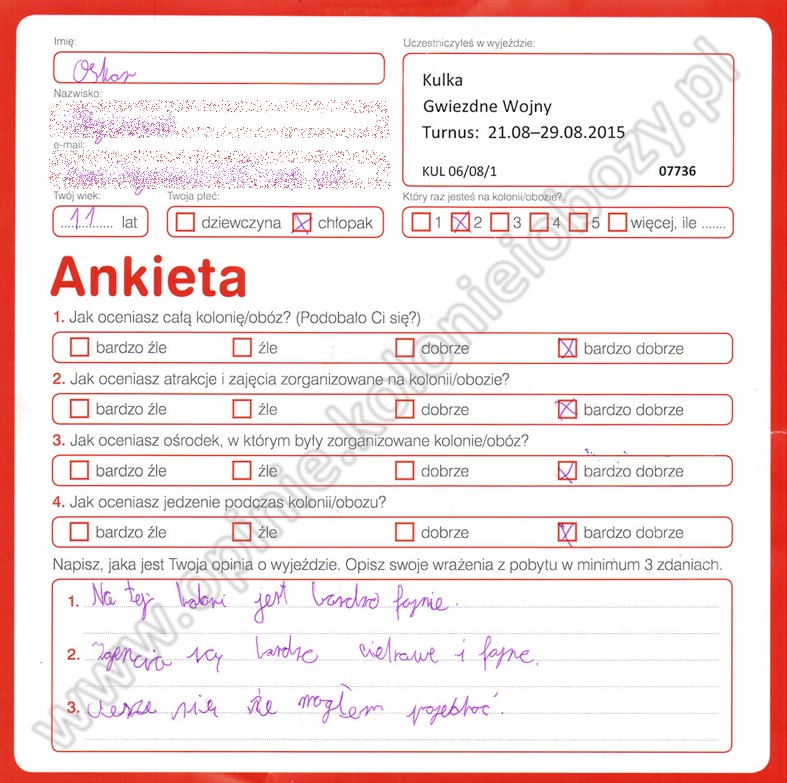 Imię:
Uczestniczyłeś w wyjeździe:
Oskar
Kulka
Gwiezdne Wojny
Turnus: 21.08–29.08.2015
KUL 06/08/1 07736
Nazwisko:
e-mail:
Twój wiek:
Twoja płeć:
Który raz jesteś na kolonii/obozie?
11 lat
dziewczyna chłopak
1 2 3 4 5 więcej, ile .......
Ankieta
1. Jak oceniasz całą kolonię/obóz? (Podobało Ci się?)
bardzo źle źle dobrze bardzo dobrze
2. Jak oceniasz atrakcje i zajęcia zorganizowane na kolonii/obozie?
bardzo źle źle dobrze bardzo dobrze
3. Jak oceniasz ośrodek, w którym były zorganizowane kolonie/obóz?
bardzo źle źle dobrze bardzo dobrze
4. Jak oceniasz jedzenie podczas kolonii/obozu?
bardzo źle źle dobrze bardzo dobrze
Napisz, jaka jest Twoja opinia o wyjeździe. Opisz swoje wrażenia z pobytu w minimum 3 zdaniach.
1. Na tej koloni jest bardzo fajnie.
2. są bardzo ciekawe i fajne.
3. się że mogłem pojechać.
www.opinie.kolonieiobozy.pl